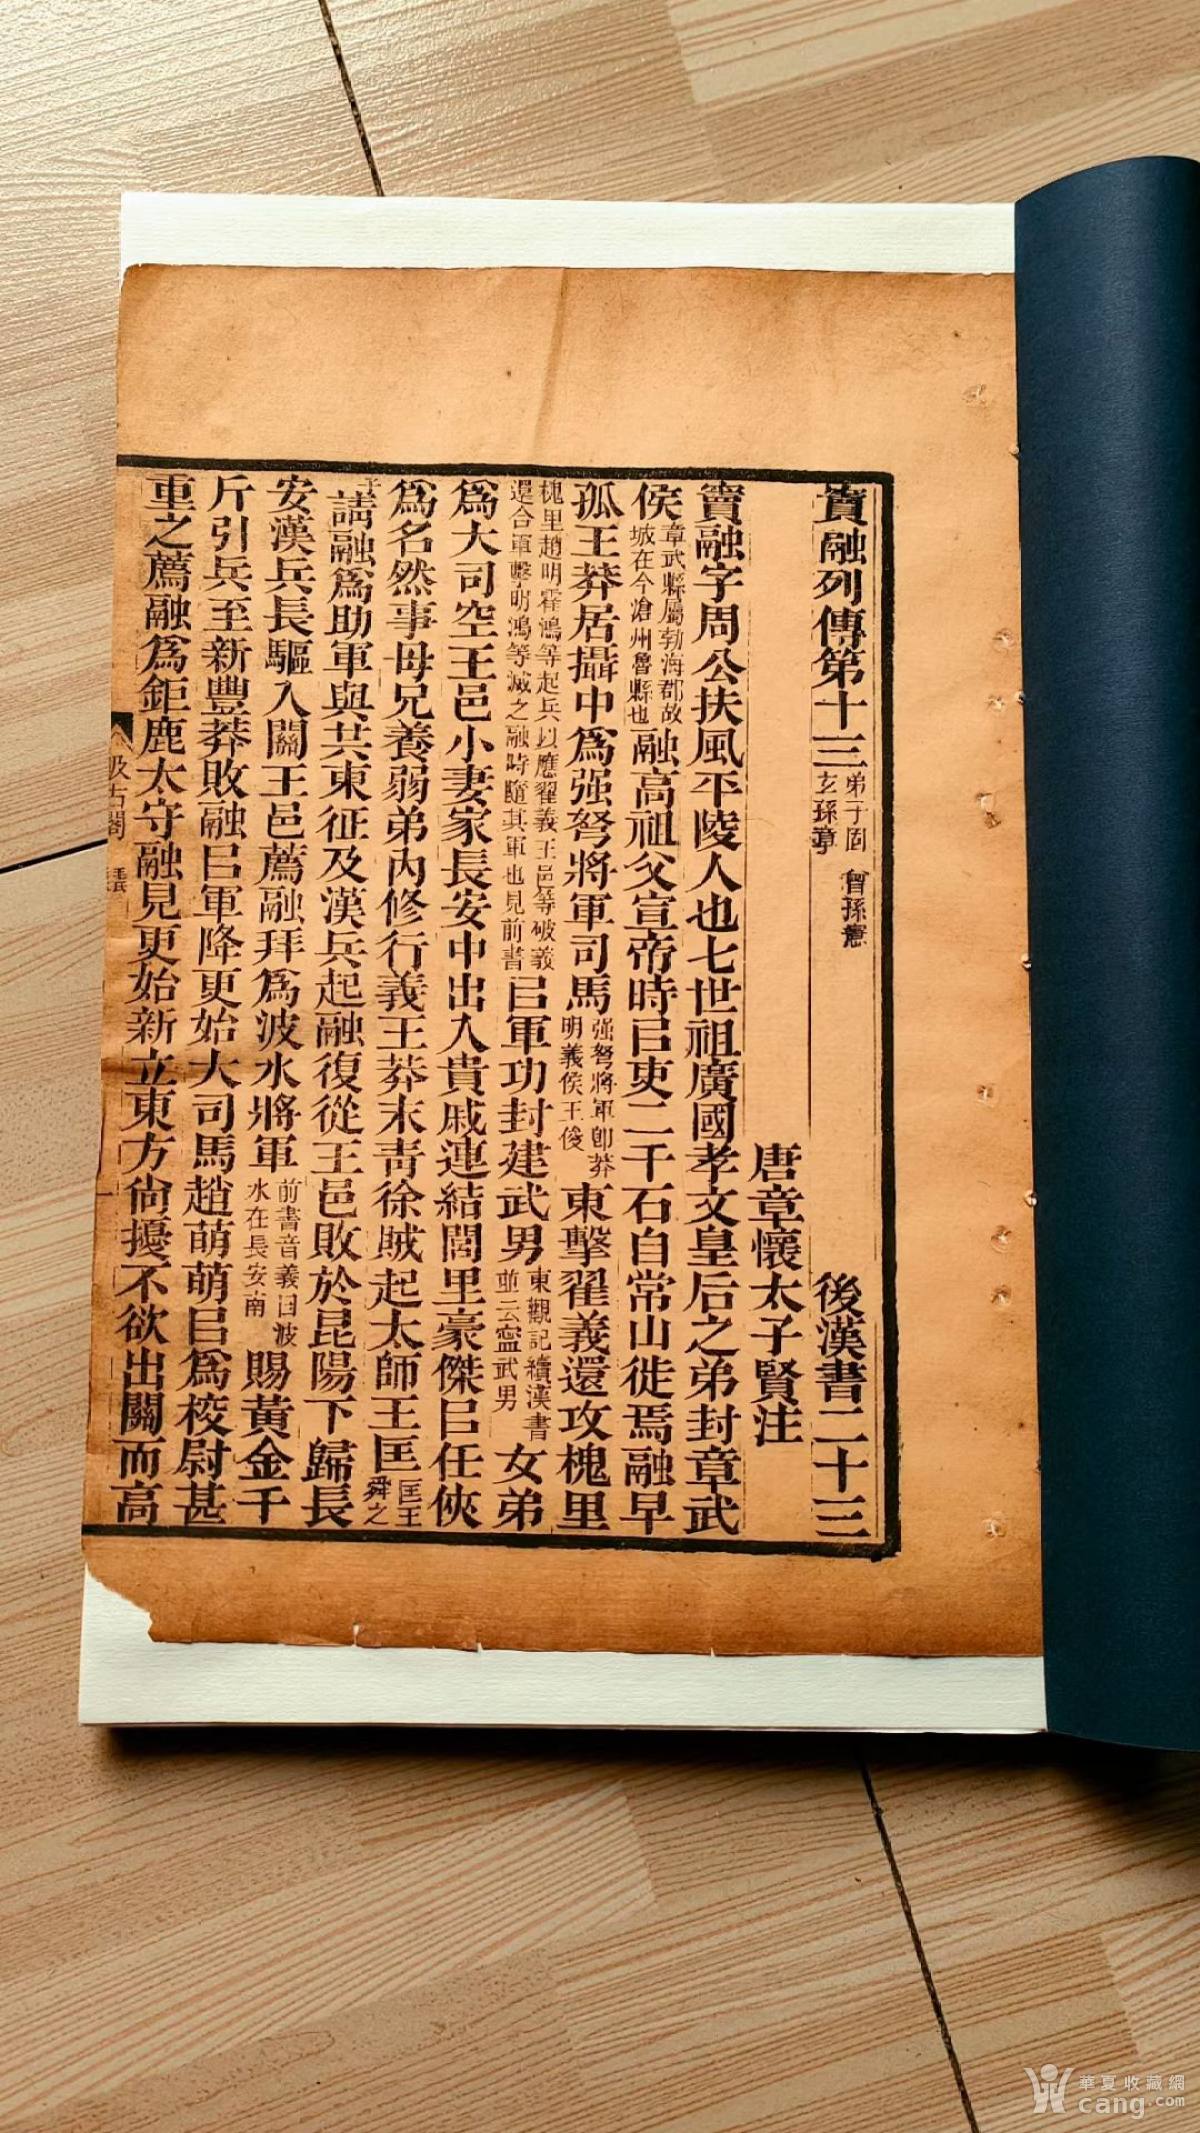 竇融列傳第十三 弟子固 曾孫憲 玄孫章 後漢書二十三
唐章懷太子賢注
竇融字周公扶風平陵人也七世祖廣國孝文皇后之弟封章武
侯 章武縣屬勃海郡故城在今滄州魯縣也 融高祖父宣帝時㠯吏二千石自常山徙焉融早
孤王莽居攝中爲强弩將軍司馬 强弩將軍卽莽明義侯王俊 東擊翟義還攻槐里
槐里趙明霍鴻等起兵以應翟義王邑等破義還合軍擊明鴻等滅之融時隨其軍也見前書 㠯軍功封建武男 東觀記續漢書並云寧武男 女弟
爲大司空王邑小妻家長安中出入貴戚連結閭里豪傑㠯任俠
爲名然事母兄養弱弟內修行義王莽末靑徐賊起太師王匡 匡王舜之子
請融爲助軍與共東征及漢兵起融復從王邑敗於昆陽下歸長
安漢兵長驅入關王邑薦融拜爲波水將軍 前書音義曰波水在長安南 賜黃金千
斤引兵至新豐莽敗融㠯軍降更始大司馬趙萌萌㠯爲校尉甚
重之薦融爲鉅鹿太守融見更始新立東方尙擾不欲出關而高
汲古閣
華夏收藏網
cang.com